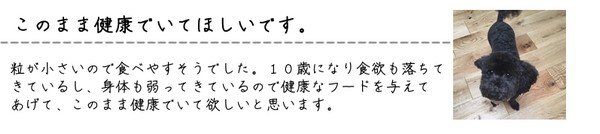 このまま健康でいてほしいです。
粒が小さいので食べやすそうでした。１０歳になり食欲も落ちて
きているし、身体も弱ってきているので健康なフードを与えて
あげて、このまま健康でいて欲しいと思います。